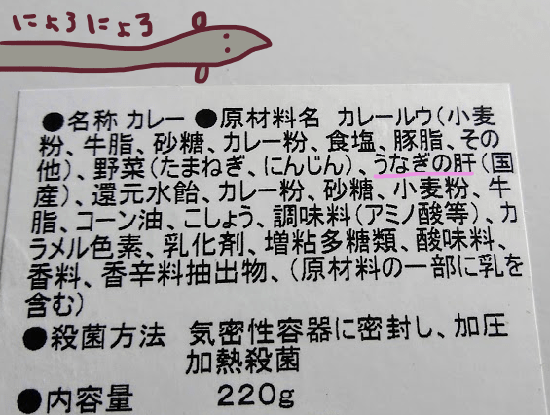 にょろにょろ
●名称 カレー ●原材料名 カレールウ(小麦
粉、牛脂、砂糖、カレー粉、食塩、豚脂、その
他)、野菜(たまねぎ、にんじん)、うなぎの肝(国
産)、還元水飴、カレー粉、砂糖、小麦粉、牛
脂、コーン油、こしょう、調味料(アミノ酸等)、カ
ラメル色素、乳化剤、増粘多糖類、酸味料、
香料、香辛料抽出物、(原材料の一部に乳を
含む)
●殺菌方法 気密性容器に密封し、加圧
加熱殺菌
●内容量 220g